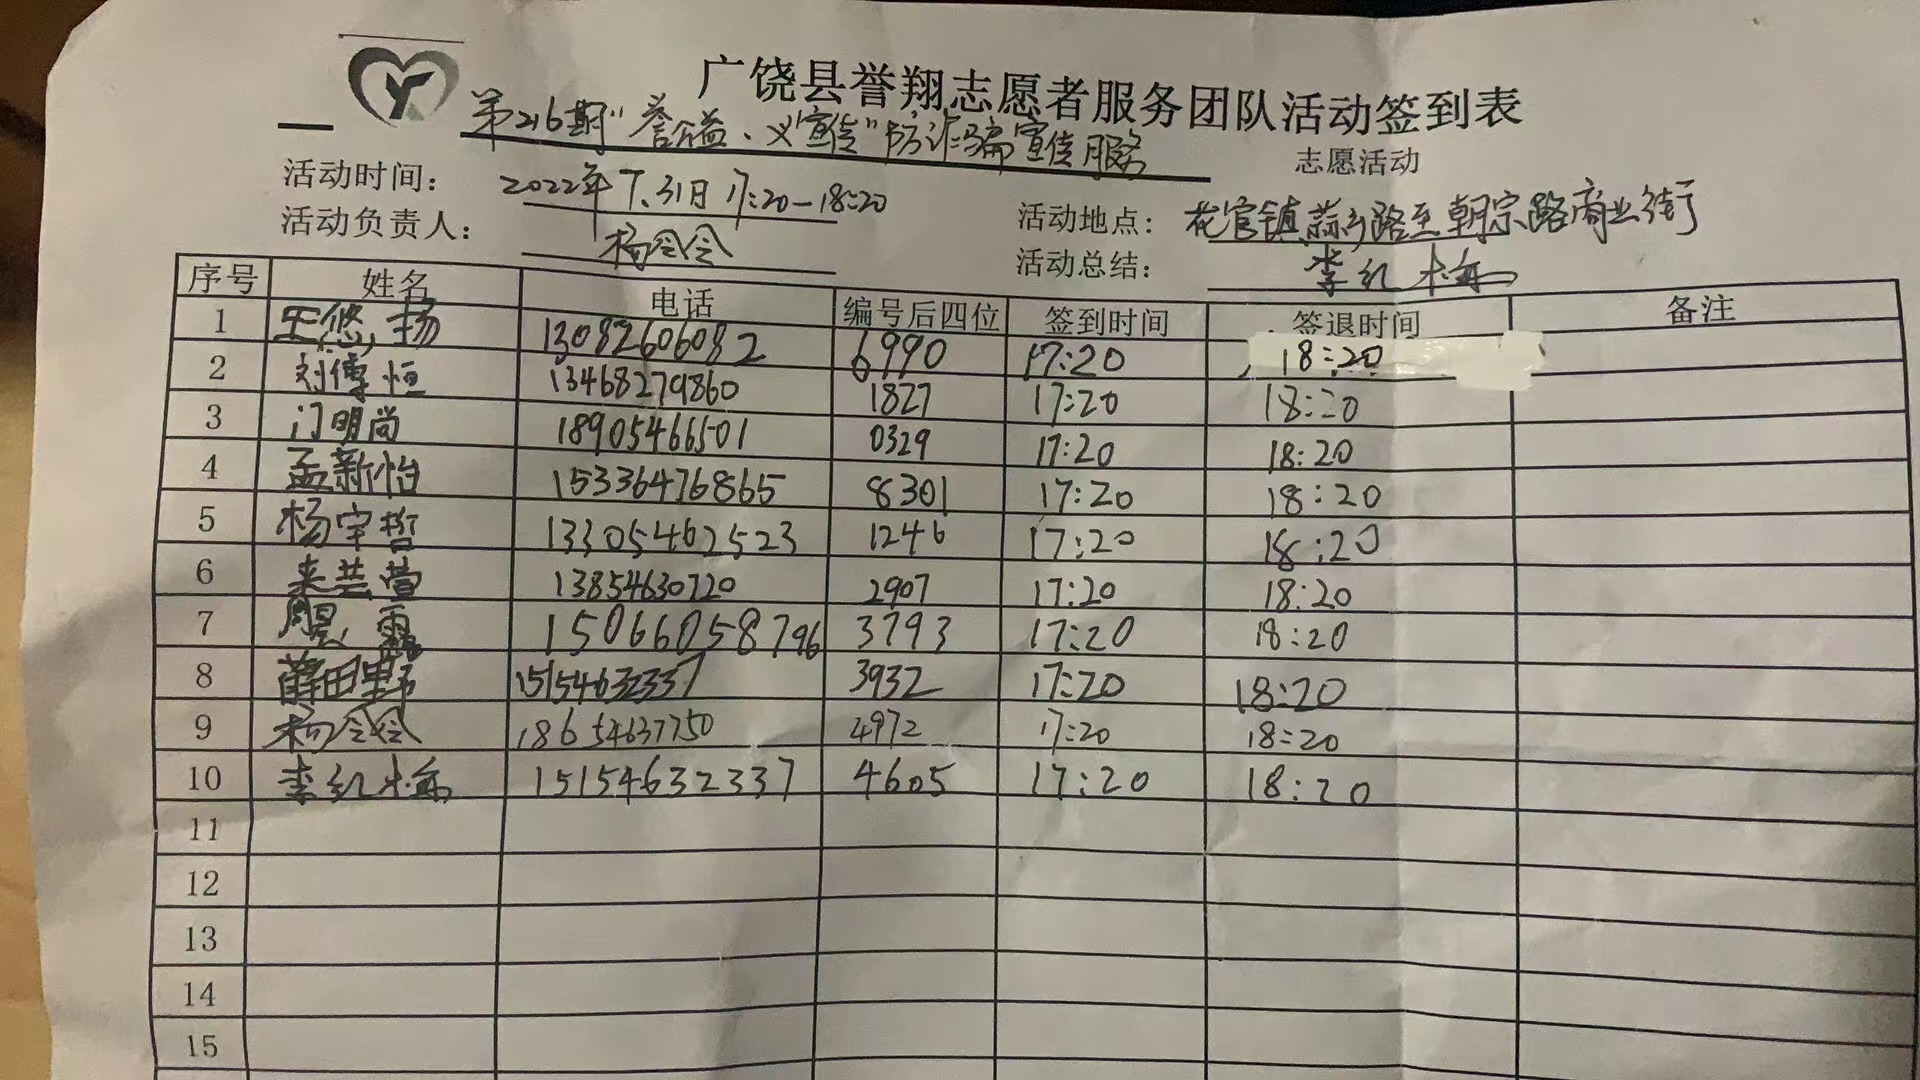 广饶县誉翔志愿者服务团队活动签到表
第216期"誉公益、义宣传"防诈骗宣传服务 志愿活动
活动时间: 2022年7.31日 17:20-18:20
活动地点: 花官镇蒜乡路至朝宗路商业街
活动负责人: 杨令令
活动总结: 李红梅
序号 姓名 电话 编号后四位 签到时间 签退时间 备注
1 王悠扬 13082606082 6990 17:20 18:20
2 刘傅恒 13468279860 1827 17:20 18:20
3 门明尚 18905466501 0329 17:20 18:20
4 孟新怡 15336476865 8301 17:20 18:20
5 杨宇哲 13305462523 1246 17:20 18:20
6 来芸萱 13854630720 2907 17:20 18:20
7 15066058796 3793 17:20 18:20
8 薛田野 15154632337 3932 17:20 18:20
9 杨令令 18654637750 4972 17:20 18:20
10 李红梅 15154632337 4605 17:20 18:20
11
12
13
14
15